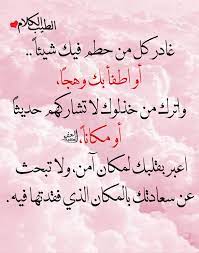 الطيب الكلام
غادر كل من حطم فيك شيئاً..
أو اطفأ بك وهجاً،
واترك من خذلوك لا تشاركهم حديثاً
أو مكاناً،
اعبر بقلبك لمكان آمن، ولا تبحث
عن سعادتك بالمكان الذي فقدتها فيه.